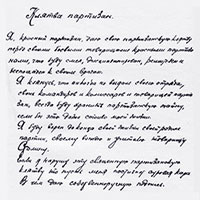 Клятва партизан.
Я, красный партизан, даю свою партизанскую клятву
перед своими боевыми товарищами красными партиза-
нами, что буду смел, дисциплинирован, решителен и
беспощаден к своим врагам.
Я клянусь, что никогда не выдам своего отряда,
своих командиров и комиссаров и товарищей партиза-
зан, всегда буду хранить партизанскую тайну,
если бы это даже стоило мне жизни.
Я буду верен до конца своей жизни своей родине
партии, своему вождю и учителю товарищу
Сталину.
Если я нарушу эту священную партизанскую
клятву то пусть меня постигнет суровая кара
В чем даю собственноручную подпись.